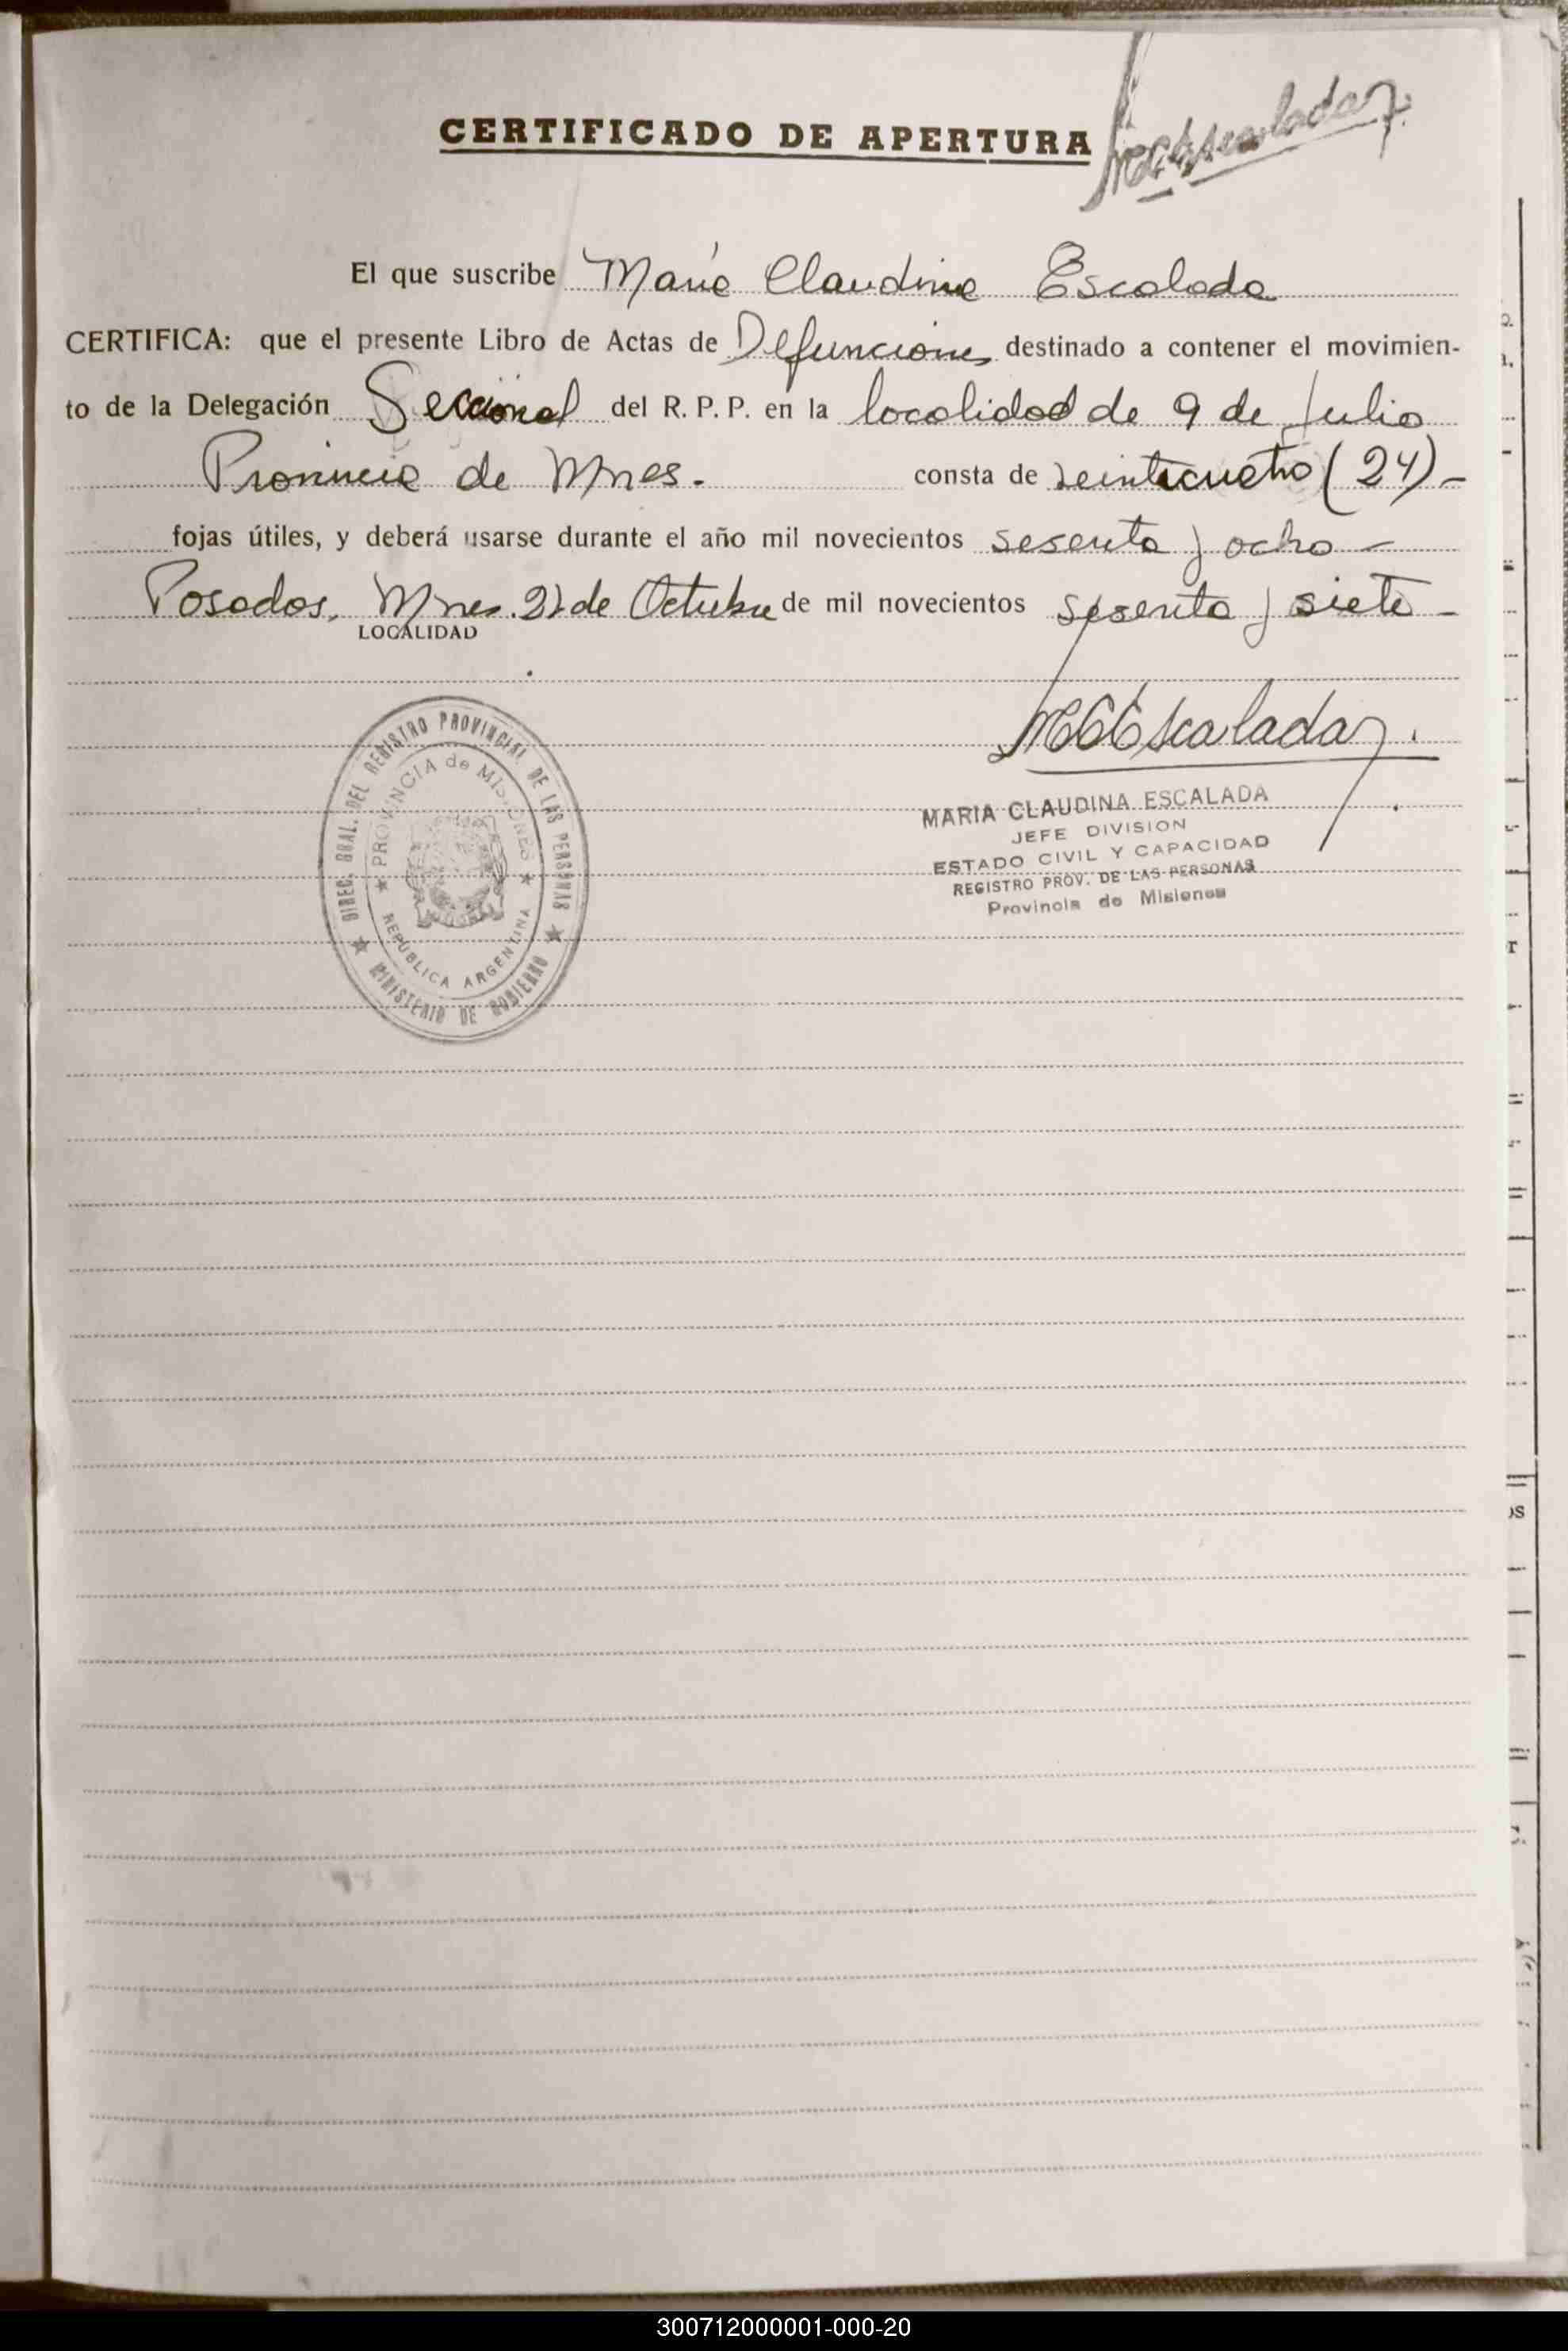 CERTIFICADO DE APERTURA
MCEscalada
El que suscribe Maria Claudina Escalada
CERTIFICA: que el presente Libro de Actas de Defunciones destinado a contener el movimien-
to de la Delegación Seccional del R. P. P. en la localidad de 9 de Julio
Provincia de Mnes. consta de veinticuatro (24) -
fojas útiles, y deberá usarse durante el año mil novecientos sesenta y ocho -
Posadas, Mnes. de Octubre de mil novecientos sesenta y siete -
LOCALIDAD
MCEscalada
DIREC. GRAL. DEL REGISTRO PROVINCIAL DE LAS PERSONAS
MINISTERIO DE GOBIERNO
PROVINCIA de MISIONES
REPÚBLICA ARGENTINA
MARIA CLAUDINA ESCALADA
JEFE DIVISION
ESTADO CIVIL Y CAPACIDAD
REGISTRO PROV. DE LAS PERSONAS
Provincia de Misiones
300712000001-000-20